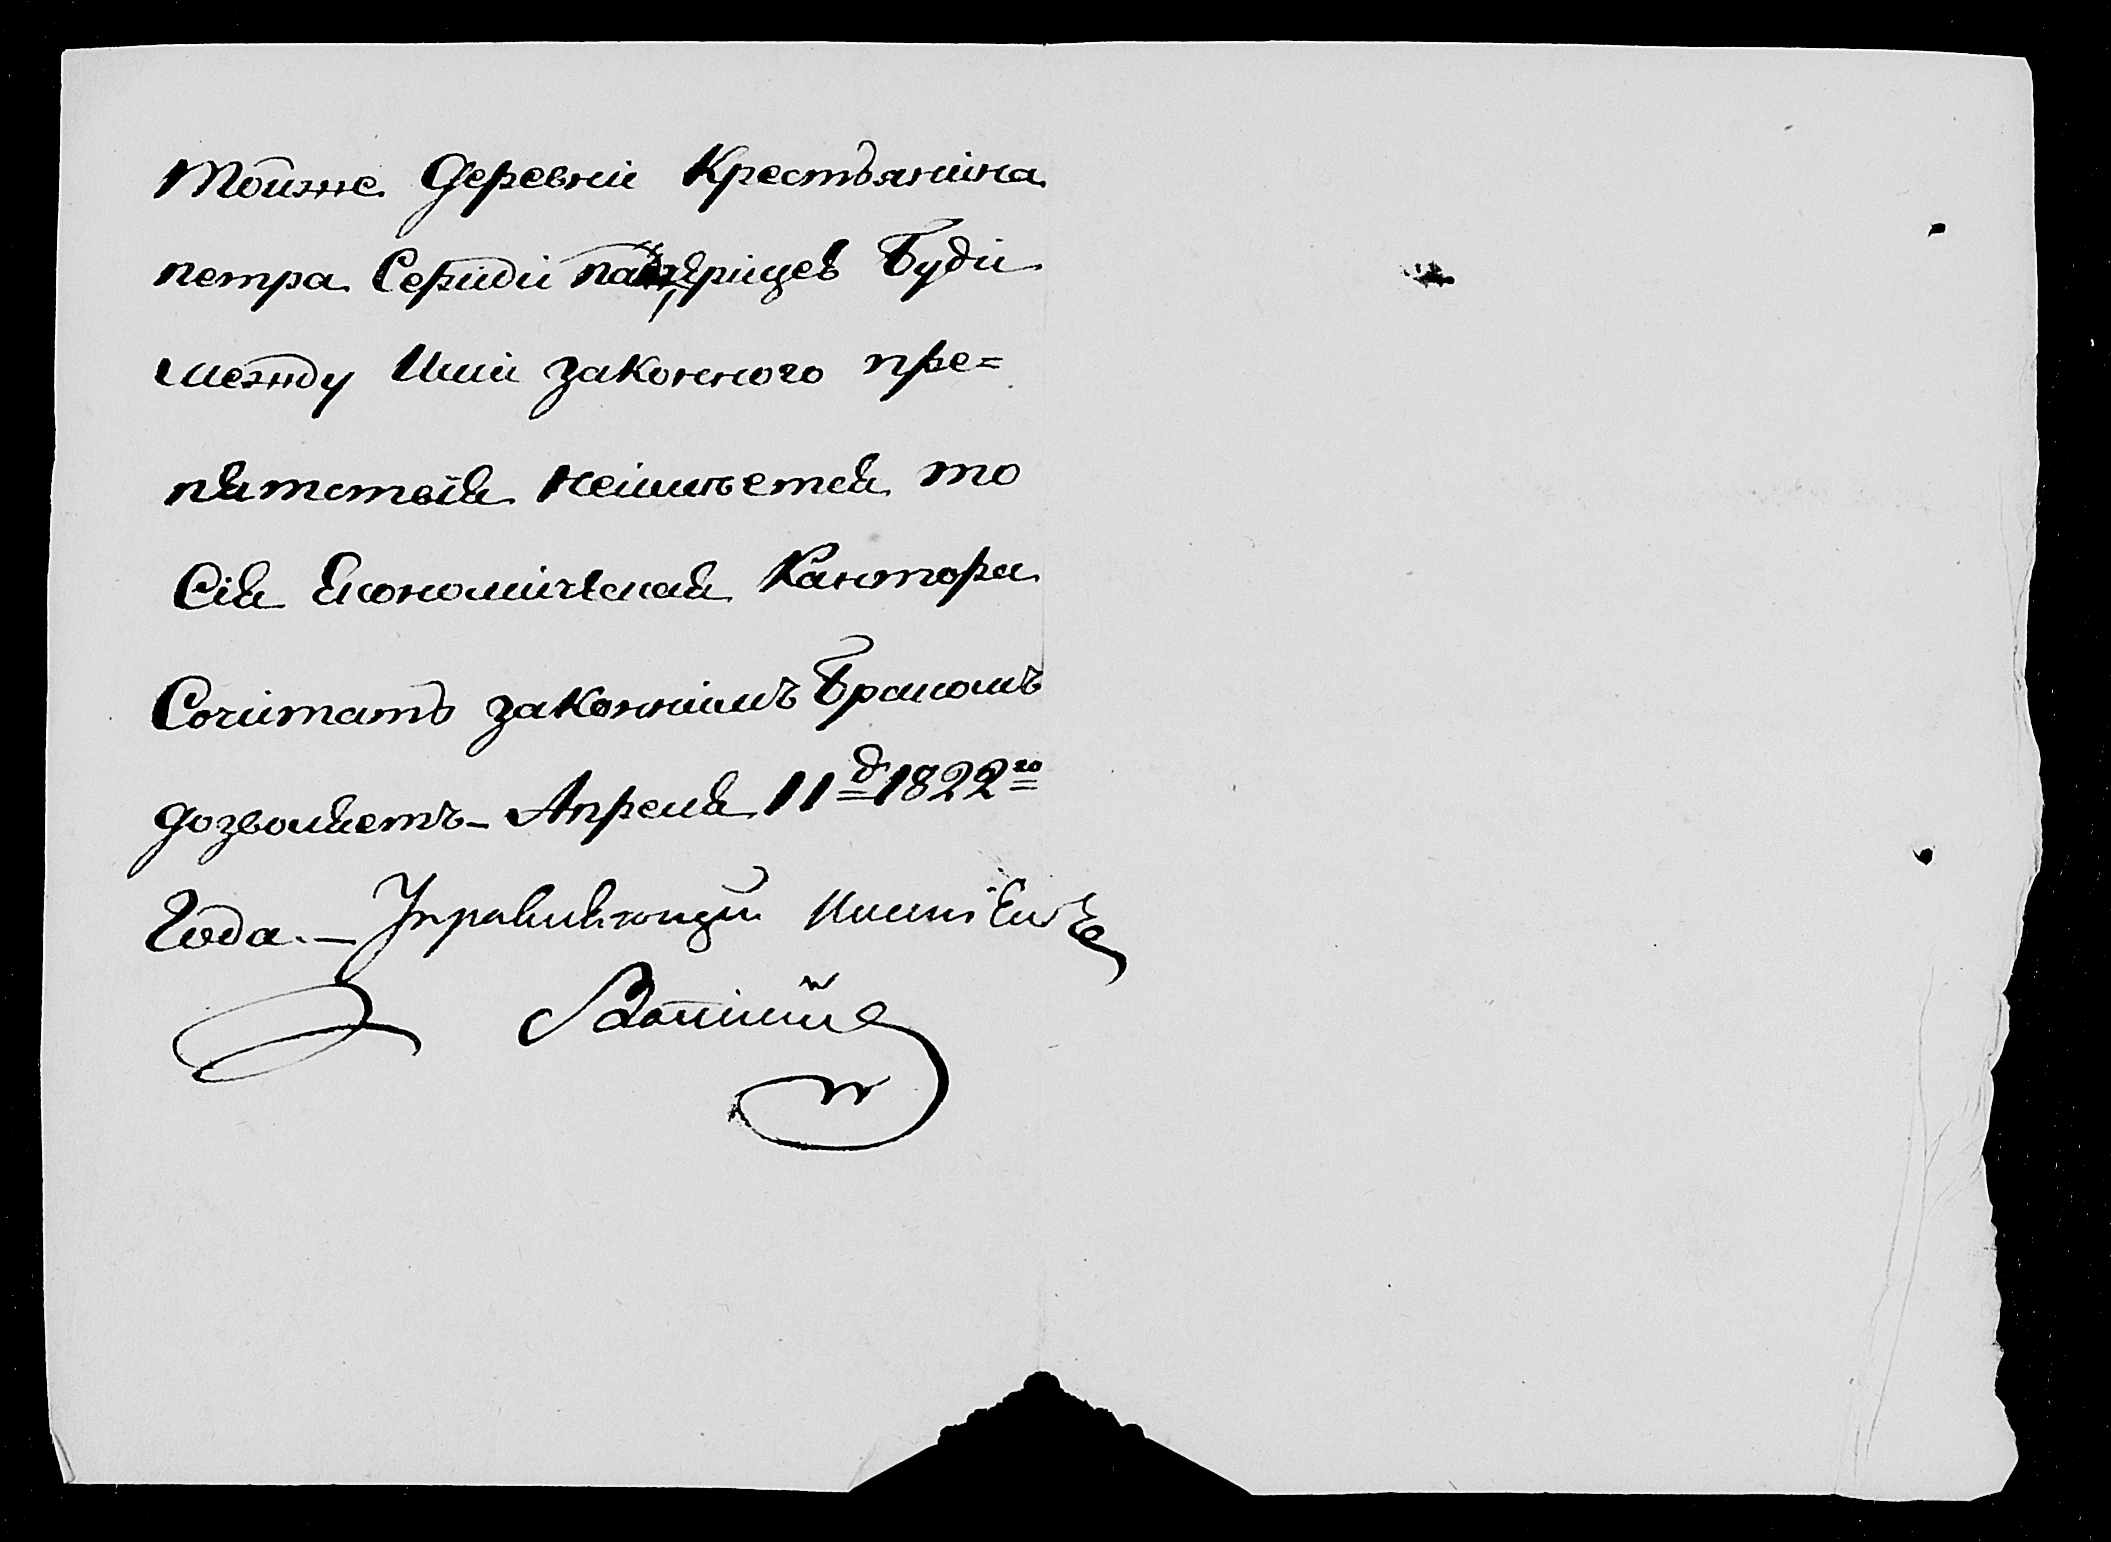 Тойже деревни Крестьянина
петра Середи Буди
между Ими законного пре=
пятствия неимѣется то
Сия Економическая Кантора
Сочитать законнимъ Бракомъ
дозволяетъ – Апреля 11 д 1822 го
Года. – Управляющий имѣниемъ